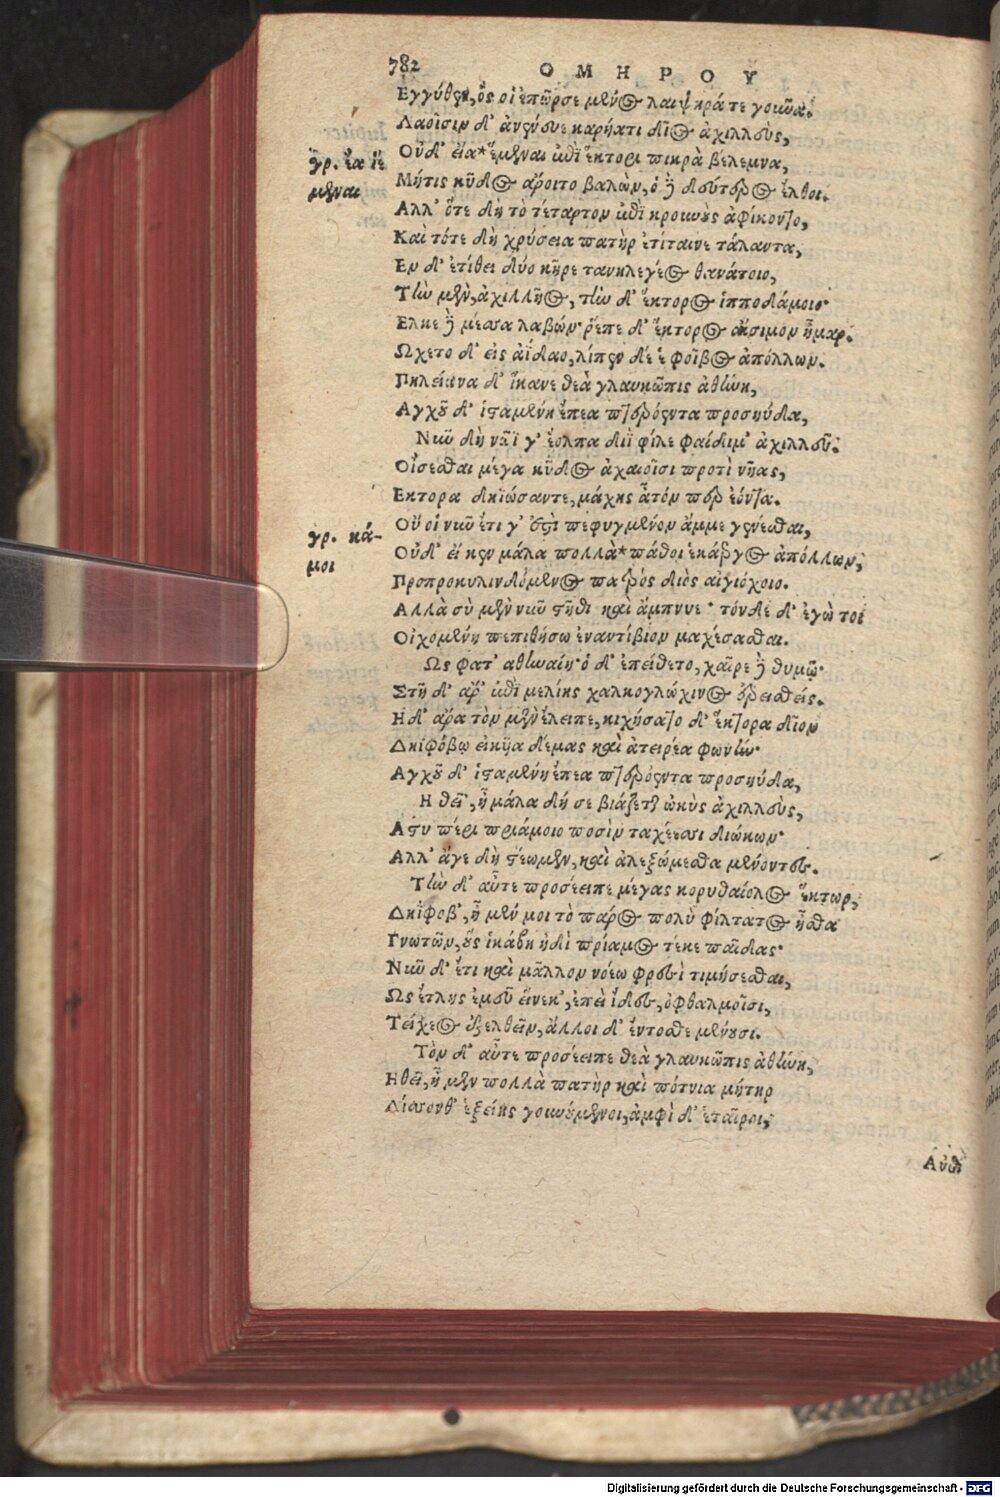 782
ΟΜΗΡΟΥ
Εγγύθεν, ὅς οἱ ἐπῶρσε μένος λαιψηρά τε γοῦνα.
Λαοῖσιν δ' ἀνένευε καρήατι δῖος ἀχιλλεὺς,
γρ. ἔα ἱέ
μεναι
Οὐδ' εἴα* ἕμεναι ἐπὶ ἕκτορι πικρὰ βέλεμνα,
Μήτις κῦδος ἄροιτο βαλὼν, ὁ δὲ δεύτερος ἔλθοι.
Αλλ' ὅτε δὴ τὸ τέταρτον ἐπὶ κρουνοὺς ἀφίκοντο,
Καὶ τότε δὴ χρύσεια πατὴρ ἐτίταινε τάλαντα,
Εν δ' ἐτίθει δύο κῆρε τανηλεγέος θανάτοιο,
Τὴν μὲν, ἀχιλλῆος, τὴν δ' ἕκτορος ἱπποδάμοιο·
Ελκε δὲ μέσσα λαβών· ῥέπε δ' ἕκτορος αἴσιμον ἦμαρ.
Ωχετο δ' εἰς ἀΐδαο, λίπεν δέ ἑ φοῖβος ἀπόλλων.
Πηλείωνα δ' ἵκανε θεὰ γλαυκῶπις ἀθήνη,
Αγχοῦ δ' ἱσταμένη ἔπεα πτερόεντα προσηύδα,
Νῦν δὴ νῶϊ γ' ἔολπα διῒ φίλε φαίδιμ' ἀχιλλεῦ.
Οἴσεσθαι μέγα κῦδος ἀχαιοῖσι προτὶ νῆας,
Εκτορα δηϊώσαντε, μάχης ἆτόν περ ἐόντα.
Οὔ οἱ νῦν ἔτι γ' ἔστι πεφυγμένον ἄμμε γενέσθαι,
γρ. κά-
μοι
Οὐδ' εἴ κεν μάλα πολλὰ* πάθοι ἑκάεργος ἀπόλλων,
Προπροκυλινδόμενος πατρὸς διὸς αἰγιόχοιο.
Αλλὰ σὺ μὲν νῦν στῆθι καὶ ἄμπνυε· τόνδε δ' ἐγώ τοι
Οἰχομένη πεπιθήσω ἐναντίβιον μαχέσασθαι.
Ως φατ' ἀθηναίη· ὁ δ' ἐπείθετο, χαῖρε δὲ θυμῷ·
Στῆ δ' ἄρ' ἐπὶ μελίης χαλκογλώχινος ἐρεισθείς.
Η δ' ἄρα τὸν μὲν ἔλειπε, κιχήσατο δ' ἕκτορα δῖον
Δηϊφόβῳ εἰκυῖα δέμας καὶ ἀτειρέα φωνήν·
Αγχοῦ δ' ἱσταμένη ἔπεα πτερόεντα προσηύδα,
Η θεῖ', ἦ μάλα δή σε βιάζεται ὠκὺς ἀχιλλεὺς,
Αστυ πέρι πριάμοιο ποσὶν ταχέεσσι διώκων·
Αλλ' ἄγε δὴ στέωμεν, καὶ ἀλεξώμεσθα μένοντες.
Τὴν δ' αὖτε προσέειπε μέγας κορυθαίολος ἕκτωρ,
Δηΐφοβ', ἦ μέν μοι τὸ πάρος πολὺ φίλτατος ἦσθα
Γνωτῶν, οὓς ἑκάβη ἠδὲ πρίαμος τέκε παῖδας·
Νῦν δ' ἔτι καὶ μᾶλλον νοέω φρεσὶ τιμήσεσθαι,
Ως ἔτλης ἐμεῦ εἵνεκ', ἐπεὶ ἴδες, ὀφθαλμοῖσι,
Τείχεος ἐξελθεῖν, ἄλλοι δ' ἔντοσθε μένουσι.
Τὸν δ' αὖτε προσέειπε θεὰ γλαυκῶπις ἀθήνη,
Ηθεῖ, ἦ μὲν πολλὰ πατὴρ καὶ πότνια μήτηρ
Λίσσονθ' ἑξείης γουνούμενοι, ἀμφὶ δ' ἑταῖροι,
Αὖθι
Digitalisierung gefördert durch die Deutsche Forschungsgemeinschaft - DFG